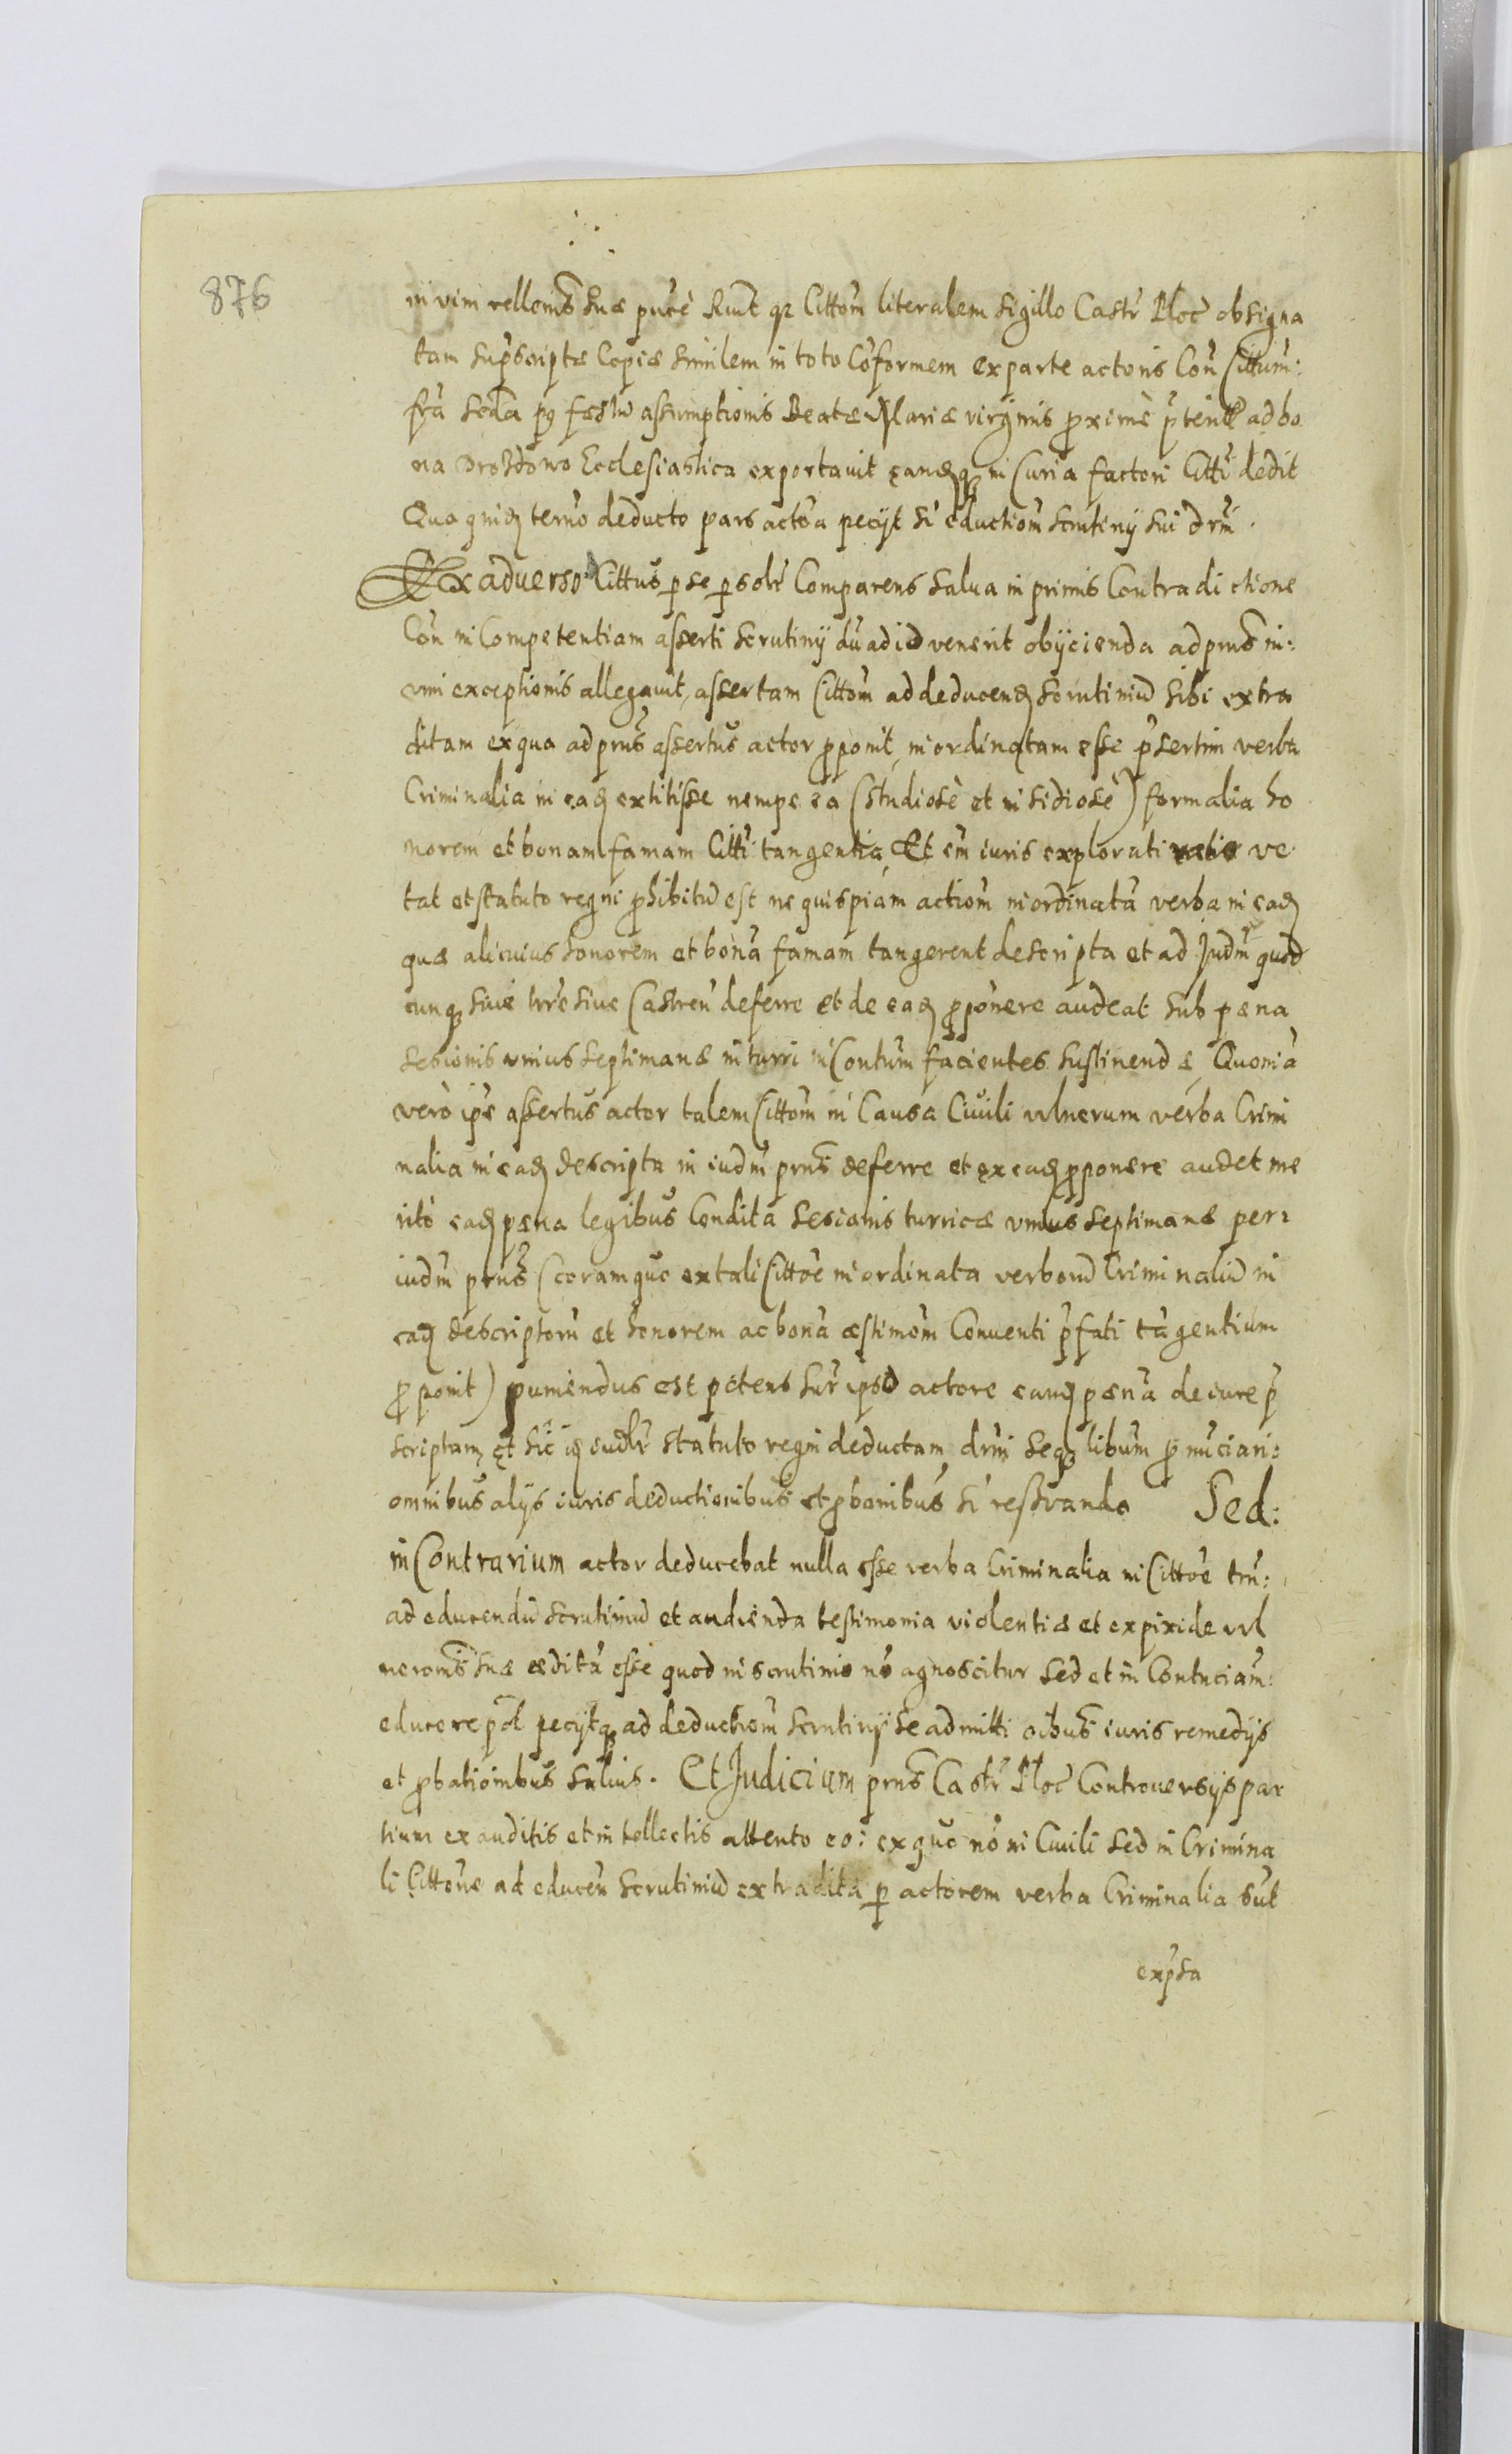 876
in vim rellonis suæ pucè Runt qz Citton̄ literalem sigillo Castr̄ Ploc̄ obsigna
tam supscriptæ Copiæ similem in toto Co̅formem ex parte actoris Con̄ Cittum:
fr̄a scd̄a pꝯ fæstū assumptionis Beatæ Mariæ virginis proximè pr̄terit̄ ad bo
na Drozdowo Ecclesiastica exportavit eandꝫqꝫ in Curia factori Citti dedit
Quo quidꝫ terno deducto pars actōa pecijt s̄i eductiōm scrutinij sui dr̄ni.
Ex aduerso Cittus p se psolr̄ Comparens salua in primis Contradictione
Con̄ in Competentiam asserti scrutinij du̅ ad id venerit obijcienda ad prns̄ in:
vim exceptionis allegauit, assertam Cittōm ad deducendꝫ scrutiniū sibi extra
ditam ex qua ad prns̄ assertus actor proponit, inordinatam esse pr̄sertim verba
Criminalia in eadꝫ extitisse nempe ea (studiosè et insidiosè) formalia ho
norem et bonam famam Citti tangentia, Et em̄ iuris explorati ratio ve
tat et statuto regni prohibitū est ne quispiam actiōm inordinatā verba in eadꝫ
quæ alicuius honorem et bonā famam tangerent descripta et ad Judm̄ quod
cunqꝫ siue terr̄e siue Castren̄ deferre et de eadꝫ proponere audeat sub pæna
sesionis unius septimanæ in turri in Contum̄ facientes sustinendæ, Quoniā
verò ip̄e assertus actor talem Cittōm in Causa Ciuili vlnerum verba Crimi
nalia in eadꝫ descripta in iudm̄ prns̄ deferre et ex eadꝫ proponere audet me
ritò eadꝫ pæna legibus Condita sesionis turricæ unius septimanæ per
iudm̄ prns̄ (coram quo ex tali Cittōe inordinata verborū Criminaliū in
eadꝫ descriptorū et honorem ac bonā æstimōm Conuenti pr̄fati tāgentium
proponit) puniendus est petens sup̄ ipso actore eandꝫ pænā de iure pr̄
scriptam, et sic statuto regni deductam, dr̄ni seqꝫ libum pronūciari:
omnibus alijs iuris deductionibus et probonibus s̄i res̄ruando Sed:
in Contrarium actor deducebat nulla esse verba Criminalia in Cittōe tm̄:
ad educendū scrutiniū et audienda testimonia violentiæ et ex pixide vul
neronis̄ suæ æditā esse quod in scrutinio nō agnoscitur sed et in Contuciam:
educere pōt pecijtqꝫ ad deductiōm scrutinij se admitti oibus̄ iuris remedijs
et probationibus saluis. Et Judicium prns̄ Castr̄ Ploc̄ Controuersijs par
tium exauditis et intellectis attento eo: ex quo nō in Ciuili sed in Crimina
li Cittōne ad educen̄ scrutiniū extradita p actorem verba Criminalia sut̄
exp̄sa